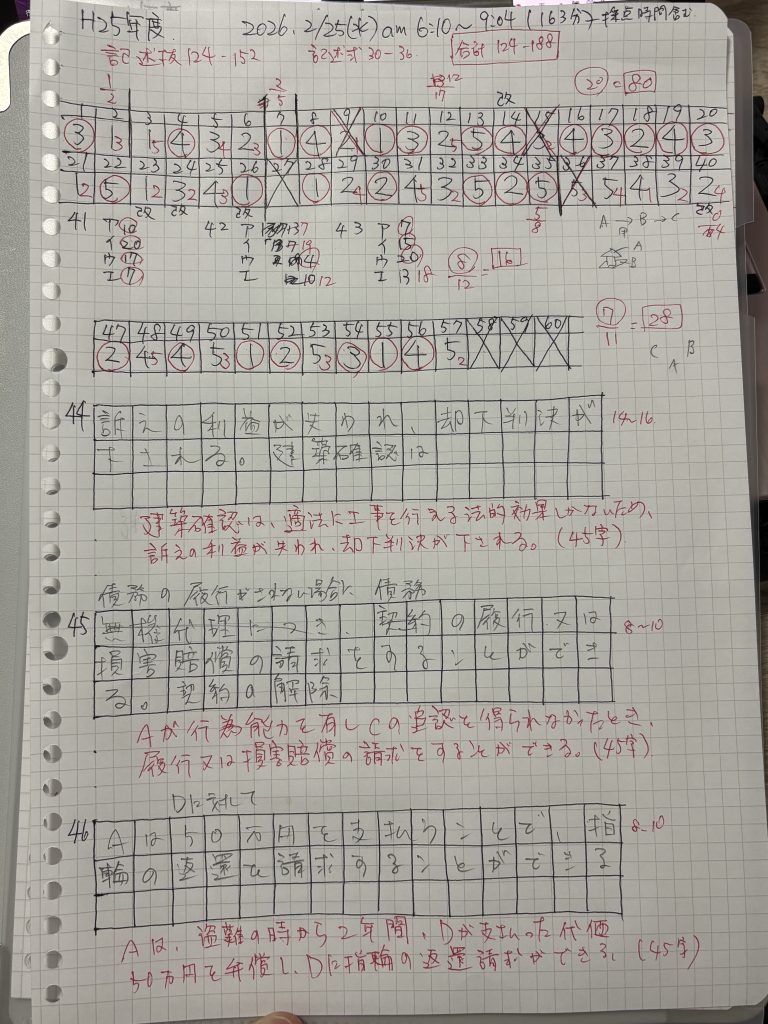 H25年度 2026. 2/25(水) am 6:10～9:04 (163分) 採点時間含む
記述抜 124-152 記述求 30-36 合計 124-188
1/2 2/5 12/17 改 20=80
1 2 3 4 5 6 7 8 9 10 11 12 13 14 15 16 17 18 19 20
3 1 3 1 5 4 3 4 2 3 1 4 2 1 3 2 5 5 4 3 4 3 2 4 3
21 22 23 24 25 26 27 28 29 30 31 32 33 34 35 36 37 38 39 40
1 2 5 1 2 3 2 4 3 1 1 2 4 2 4 5 3 2 5 2 5 5 5 4 4 1 3 2 2 4
改 改 改 5/8 改
41 ア 10 42 ア 37 43 ア 7
イ 20 イ 19 イ 5
ウ 17 ウ 4 ウ 20
エ 7 エ 10 12 エ 13 18
8/12=16
A→B→C
47 48 49 50 51 52 53 54 55 56 57 58 59 60
2 4 5 4 5 3 1 2 5 3 3 1 4 5 2
7/11=28
C B
A
44 訴えの利益が失われ、却下判決が 14～16
下される。建築確認は
建築確認は、適法に工事を行える法的効果しかないため、
訴えの利益が失われ、却下判決が下される。(45字)
債務の履行がされない場合に 債務
45 無権代理につき、契約の履行又は 8～10
損害賠償の請求をすることができ
る。契約の解除
Aが行為能力を有しCの追認を得られなかったとき、
履行又は損害賠償の請求をすることができる。(45字)
Dに対して
46 Aは50万円を支払うことで、指 8-10
輪の返還を請求することができる
Aは、盗難の時から2年間、Dが支払った代価
50万円を弁償し、Dに指輪の返還請求ができる。(45字)